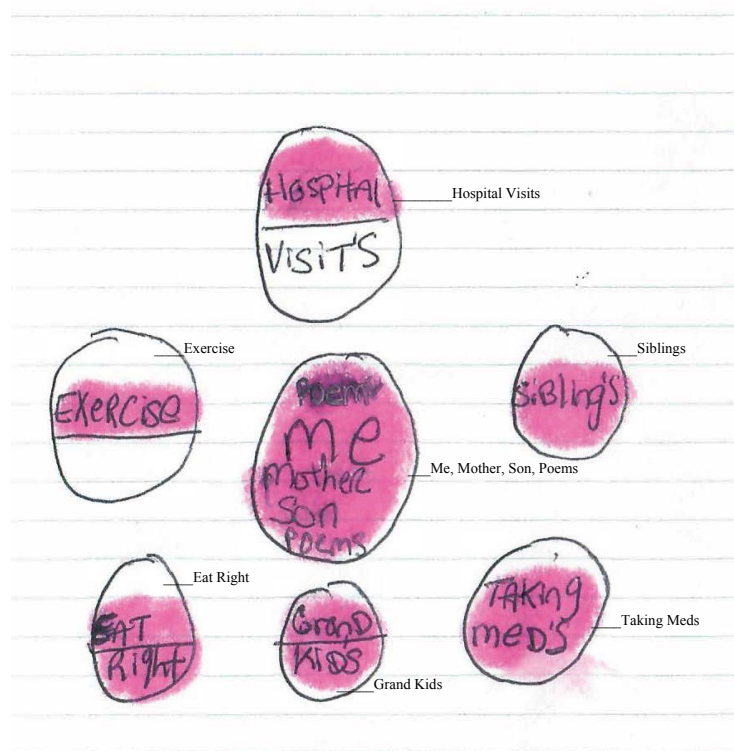 HOSPITAL
Hospital Visits
VISIT'S
Exercise
Siblings
EXERCISE
SiBling'S
Poem
me
Mother
Son
Poems
Me, Mother, Son, Poems
Eat Right
EAT
Right
GranD
KIDS
Grand Kids
TAKing
meD'S
Taking Meds